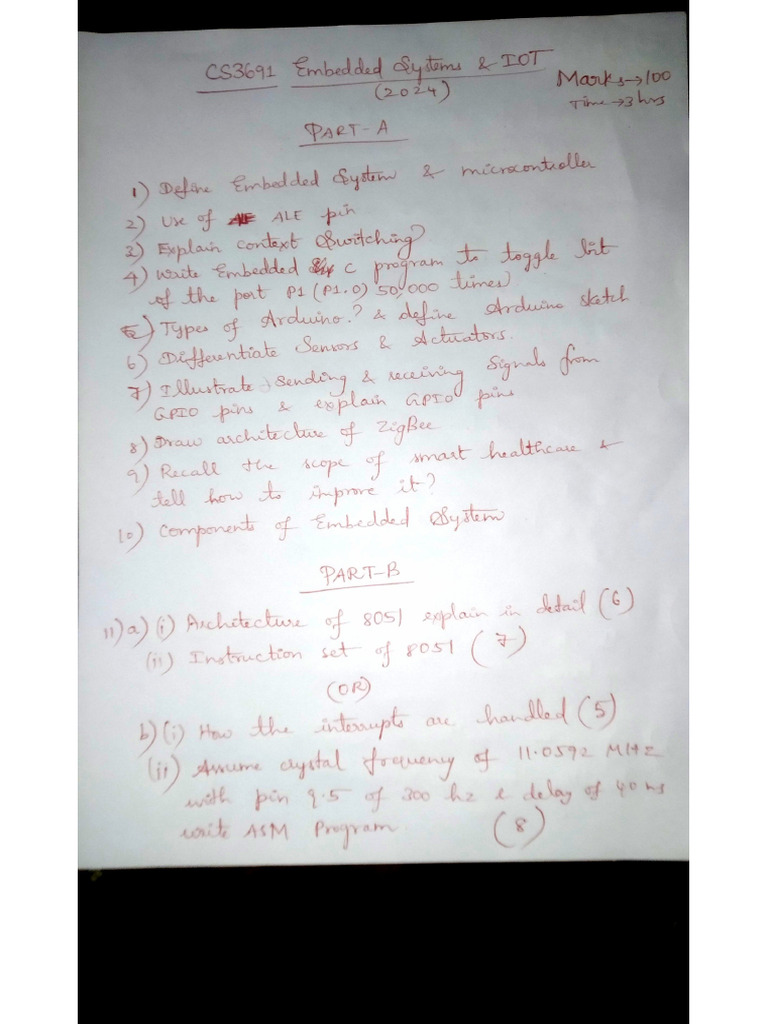 CS3691 Embedded Systems & IOT
(2024)
Marks→100
Time→3 hrs
PART-A
1) Define Embedded System & microcontroller
2) Use of ALE pin
3) Explain context Switching?
4) Write Embedded C program to toggle bit
of the port P1 (P1.0) 50,000 times?
5) Types of Arduino.? & define Arduino sketch
6) Differentiate Sensors & Actuators.
7) Illustrate sending & receiving Signals from
GPIO pins & explain GPIO pins
8) Draw architecture of ZigBee
9) Recall the scope of smart healthcare &
tell how to improve it?
10) Components of Embedded System
PART-B
11) a) (i) Architecture of 8051 explain in detail (6)
(ii) Instruction set of 8051 (7)
(OR)
b) (i) How the interrupts are handled (5)
(ii) Assume crystal frequency of 11.0592 MHz
with pin 9.5 of 300 hz & delay of 40 ms
write ASM Program (8)